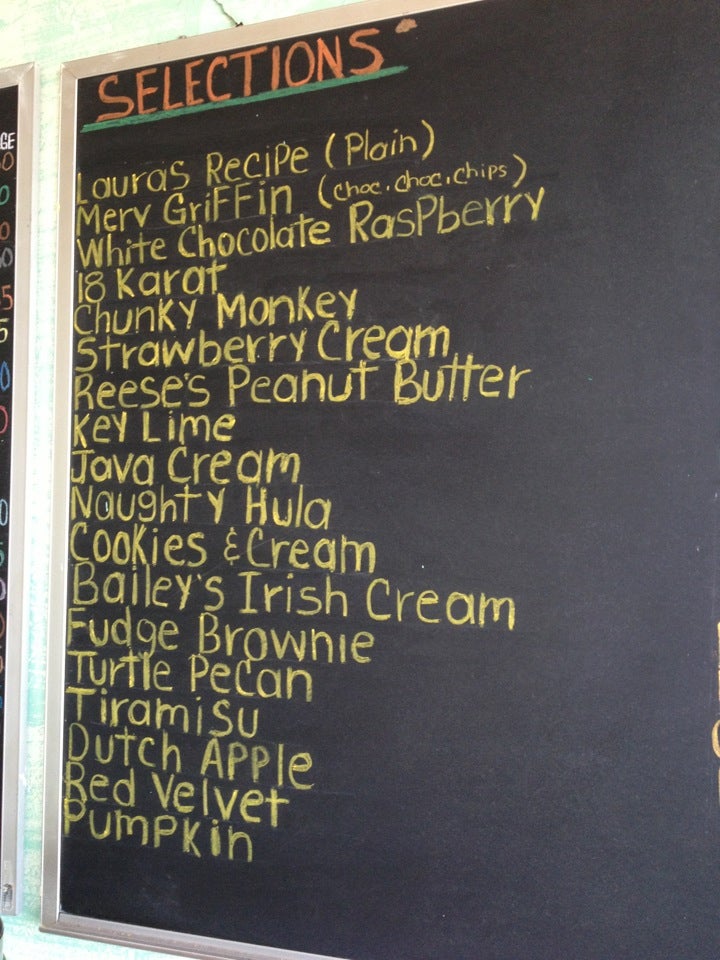 SELECTIONS
Lauras Recipe (Plain)
Merv Griffin (choc. choc. chips)
White Chocolate Raspberry
18 Karat
Chunky Monkey
Strawberry Cream
Reese's Peanut Butter
Key Lime
Java Cream
Naughty Hula
Cookies & Cream
Bailey's Irish Cream
Fudge Brownie
Turtle Pecan
Tiramisu
Dutch Apple
Red Velvet
Pumpkin